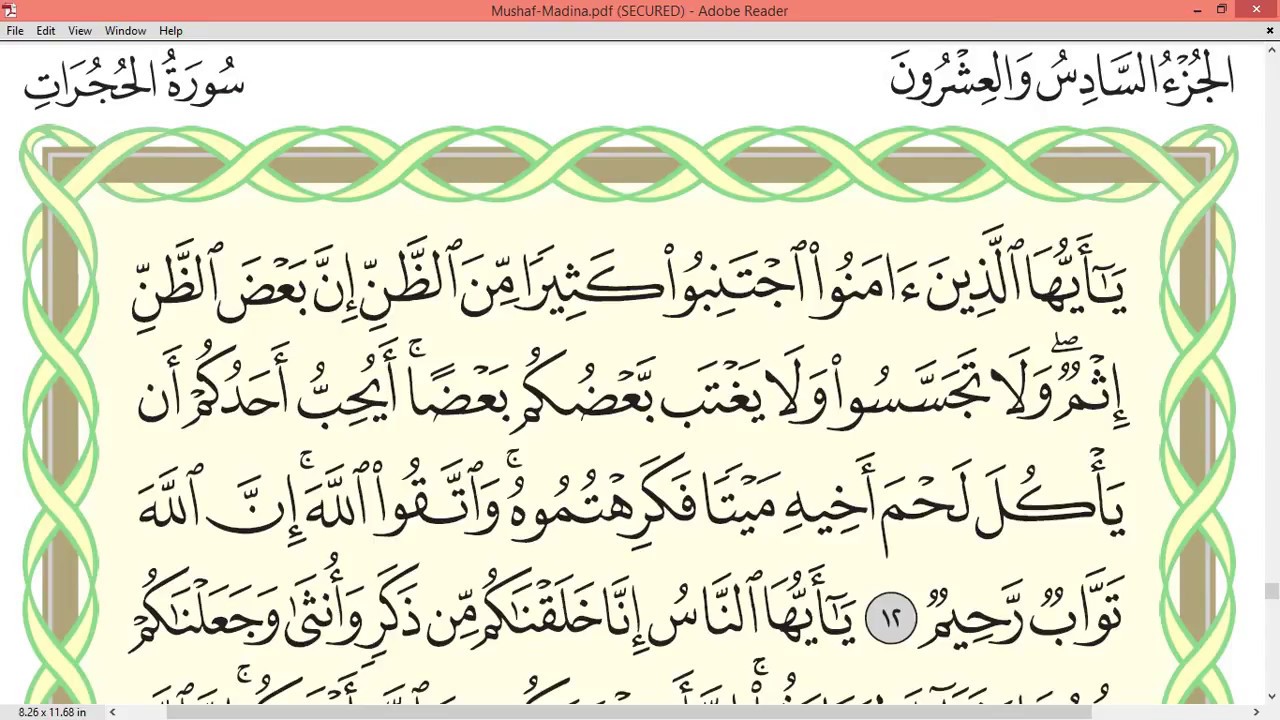 Mushaf-Madina.pdf (SECURED) - Adobe Reader
File Edit View Window Help
الجُزْءُ السَّادِسُ وَالعِشْرُونَ سُورَةُ الحُجُرَاتِ
يَـٰٓأَيُّهَا ٱلَّذِينَ ءَامَنُوا۟ ٱجْتَنِبُوا۟ كَثِيرًا مِّنَ ٱلظَّنِّ إِنَّ بَعْضَ ٱلظَّنِّ
إِثْمٌ ۖ وَلَا تَجَسَّسُوا۟ وَلَا يَغْتَب بَّعْضُكُم بَعْضًا ۚ أَيُحِبُّ أَحَدُكُمْ أَن
يَأْكُلَ لَحْمَ أَخِيهِ مَيْتًا فَكَرِهْتُمُوهُ ۚ وَٱتَّقُوا۟ ٱللَّهَ ۚ إِنَّ ٱللَّهَ
تَوَّابٌ رَّحِيمٌ ١٢ يَـٰٓأَيُّهَا ٱلنَّاسُ إِنَّا خَلَقْنَـٰكُم مِّن ذَكَرٍ وَأُنثَىٰ وَجَعَلْنَـٰكُمْ
8.26 x 11.68 in